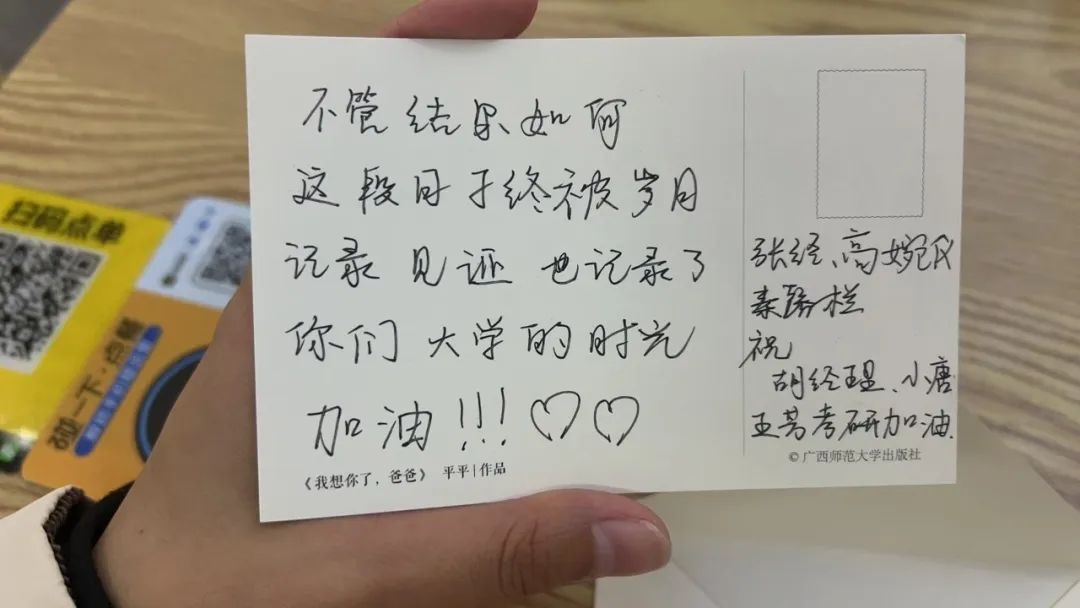 不管结果如何
这段日子终被岁月
记录见证 也记录了
你们大学的时光
加油!!!♡♡
《我想你了,爸爸》 平平|作品
张经、高婉仪
秦露栏
祝
胡经理、小唐
王芳考研加油.
© 广西师范大学出版社
扫码点单
碰一下·点餐